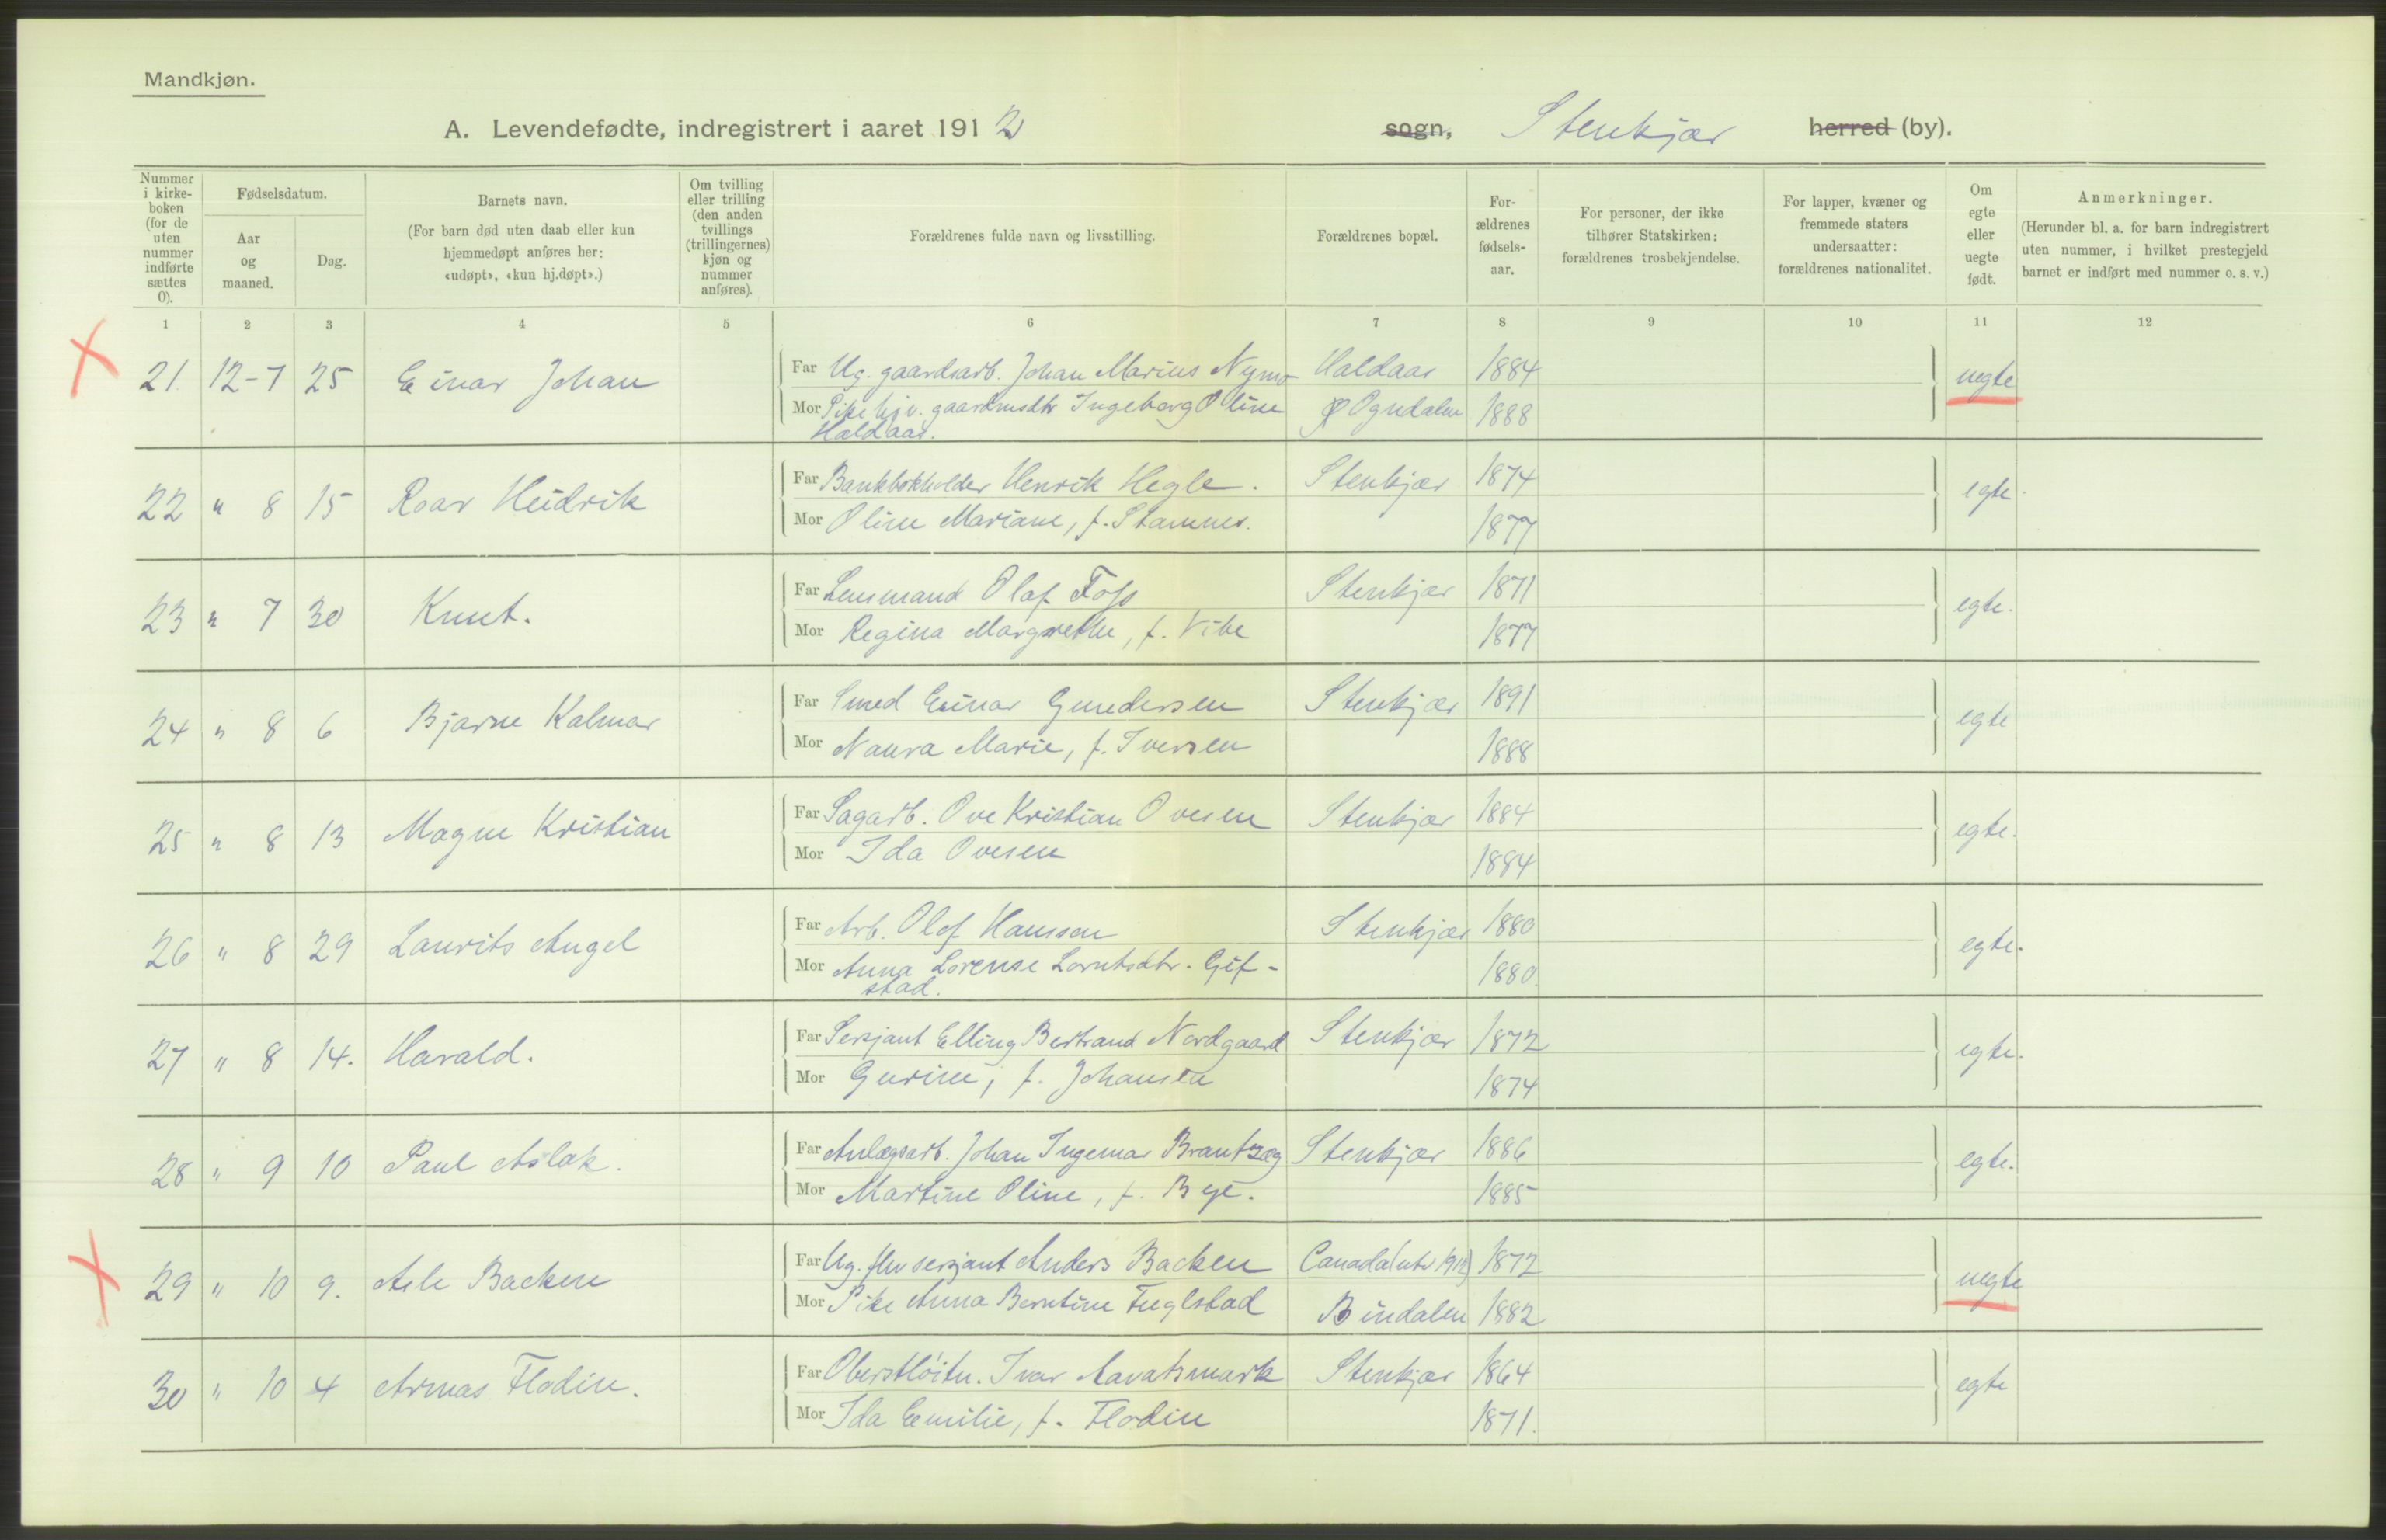 Mandkjøn.
A. Levendefødte, indregistrert i aaret 1912 sogn, Stenkjær herred (by).
Nummer i kirkeboken (for de uten nummer indførte sættes 0).
Fødselsdatum.
Aar og maaned.
Dag.
Barnets navn.
(For barn død uten daab eller kun hjemmedøpt anføres her: «udøpt», «kun hj.døpt».)
Om tvilling eller trilling (den anden tvillings (trillingernes) kjøn og nummer anføres).
Forældrenes fulde navn og livsstilling.
Forældrenes bopæl.
Forældrenes fødselsaar.
For personer, der ikke tilhører Statskirken: forældrenes trosbekjendelse.
For lapper, kvæner og fremmede staters undersaatter: forældrenes nationalitet.
Om egte eller uegte født.
Anmerkninger.
(Herunder bl. a. for barn indregistrert uten nummer, i hvilket prestegjeld barnet er indført med nummer o. s. v.)
1 2 3 4 5 6 7 8 9 10 11 12
21. 12-7 25 Einar Johan Far Ug. gaardsarb. Johan Marius Nymo Haldaas 1884 uegte
Mor Pike hjv. gaardmsdtr Ingeborg Oline Ogndalen 1888
Haldaas.
22 " 8 15 Roar Heidrik Far Bankbokholder Henrik Hegle. Stenkjær 1874 egte.
Mor Oline Mariane, f. Stamnes. 1877
23 " 7 30 Knut. Far Lensmand Olaf Foss Stenkjær 1871 egte.
Mor Regina Margrethe, f. Vibe 1877
24 " 8 6 Bjarne Kalmar Far Smed Einar Gundersen Stenkjær 1891 egte
Mor Naura Marie, f. Iversen 1888
25 " 8 13 Magne Kristian Far Sagarb. Ove Kristian Ovesen Stenkjær 1884 egte.
Mor Ida Ovesen 1884
26 " 8 29 Laurits Angel Far Arb. Olaf Hansen Stenkjær 1880 egte.
Mor Anna Lorense Lorntsdtr. Gif-
stad. 1880.
27 " 8 14. Harald. Far Sersjant Elling Bertrand Nordgaard Stenkjær 1872 egte.
Mor Gurine, f. Johansen 1874
28 " 9 10 Paul Aslak. Far Anlægsarb. Johan Ingemar Brantzæg Stenkjær 1886 egte.
Mor Martine Oline, f. Bye. 1885
29 " 10 9. Atle Backen Far Ug. fhv sersjant Anders Backen Canada 1872 uegte
Mor Pike Anna Berntine Fuglstad Bindalen 1882
30 " 10 4 Armas Flodin. Far Oberstløitn. Ivar Aavatsmark Stenkjær 1864 egte
Mor Ida Emilie, f. Flodin 1871.